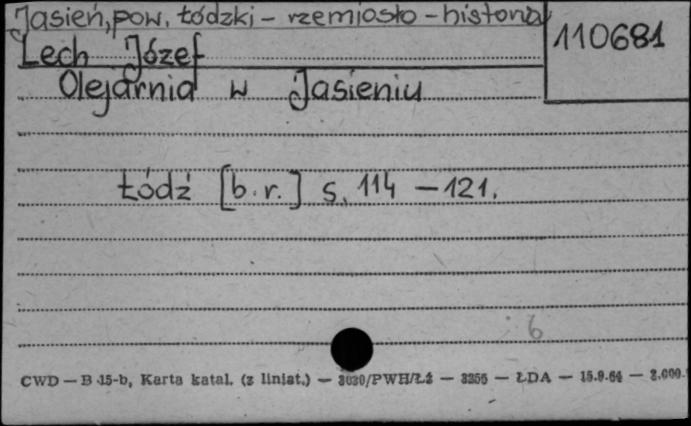 Jasień, pow. Łódzki - rzemiosło - historia
110681
Lech Józef
Olejarnia w Jasieniu
Łódź [b.r.] s. 114 - 121.
6
CWD — B 15-b, Karta katal. (z liniat.) — 3030/PWH/Łż — 3255 — ŁDA — 15.9.64 — 2.000